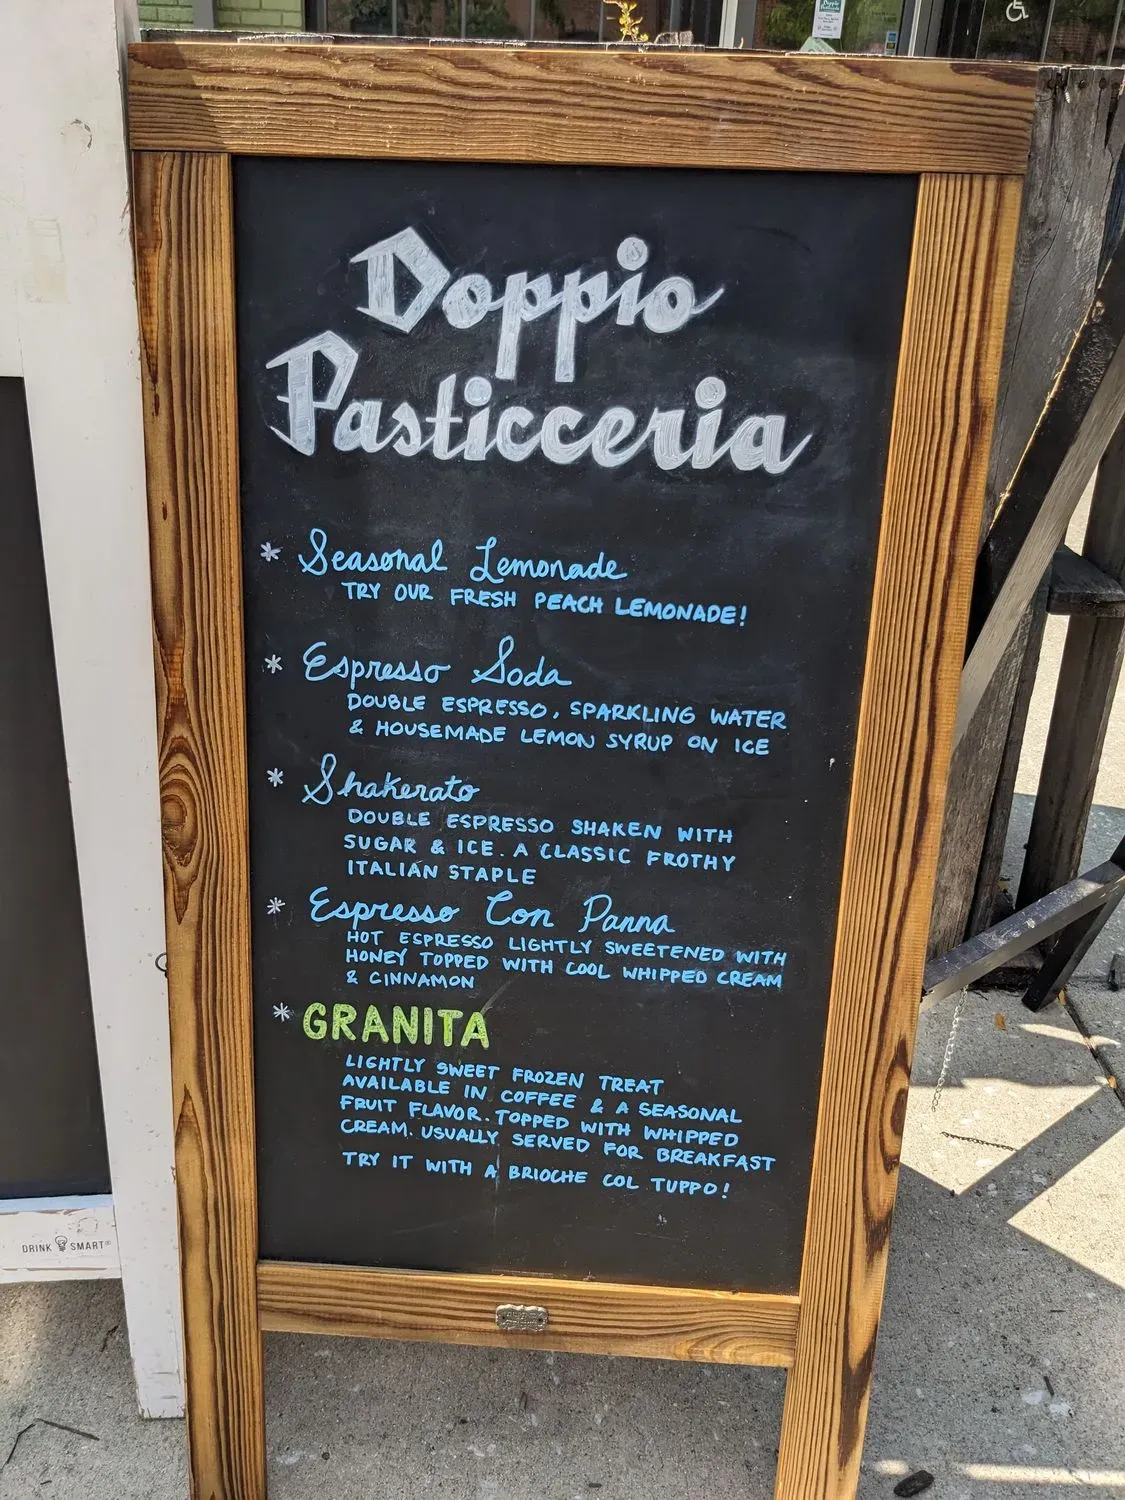 Doppio
Pasticceria
* Seasonal Lemonade
TRY OUR FRESH PEACH LEMONADE!
* Espresso Soda
DOUBLE ESPRESSO, SPARKLING WATER
& HOUSEMADE LEMON SYRUP ON ICE
* Shakerato
DOUBLE ESPRESSO SHAKEN WITH
SUGAR & ICE. A CLASSIC FROTHY
ITALIAN STAPLE
* Espresso Con Panna
HOT ESPRESSO LIGHTLY SWEETENED WITH
HONEY TOPPED WITH COOL WHIPPED CREAM
& CINNAMON
* GRANITA
LIGHTLY SWEET FROZEN TREAT
AVAILABLE IN COFFEE & A SEASONAL
FRUIT FLAVOR. TOPPED WITH WHIPPED
CREAM. USUALLY SERVED FOR BREAKFAST
TRY IT WITH A BRIOCHE COL TUPPO!
DRINK SMART®